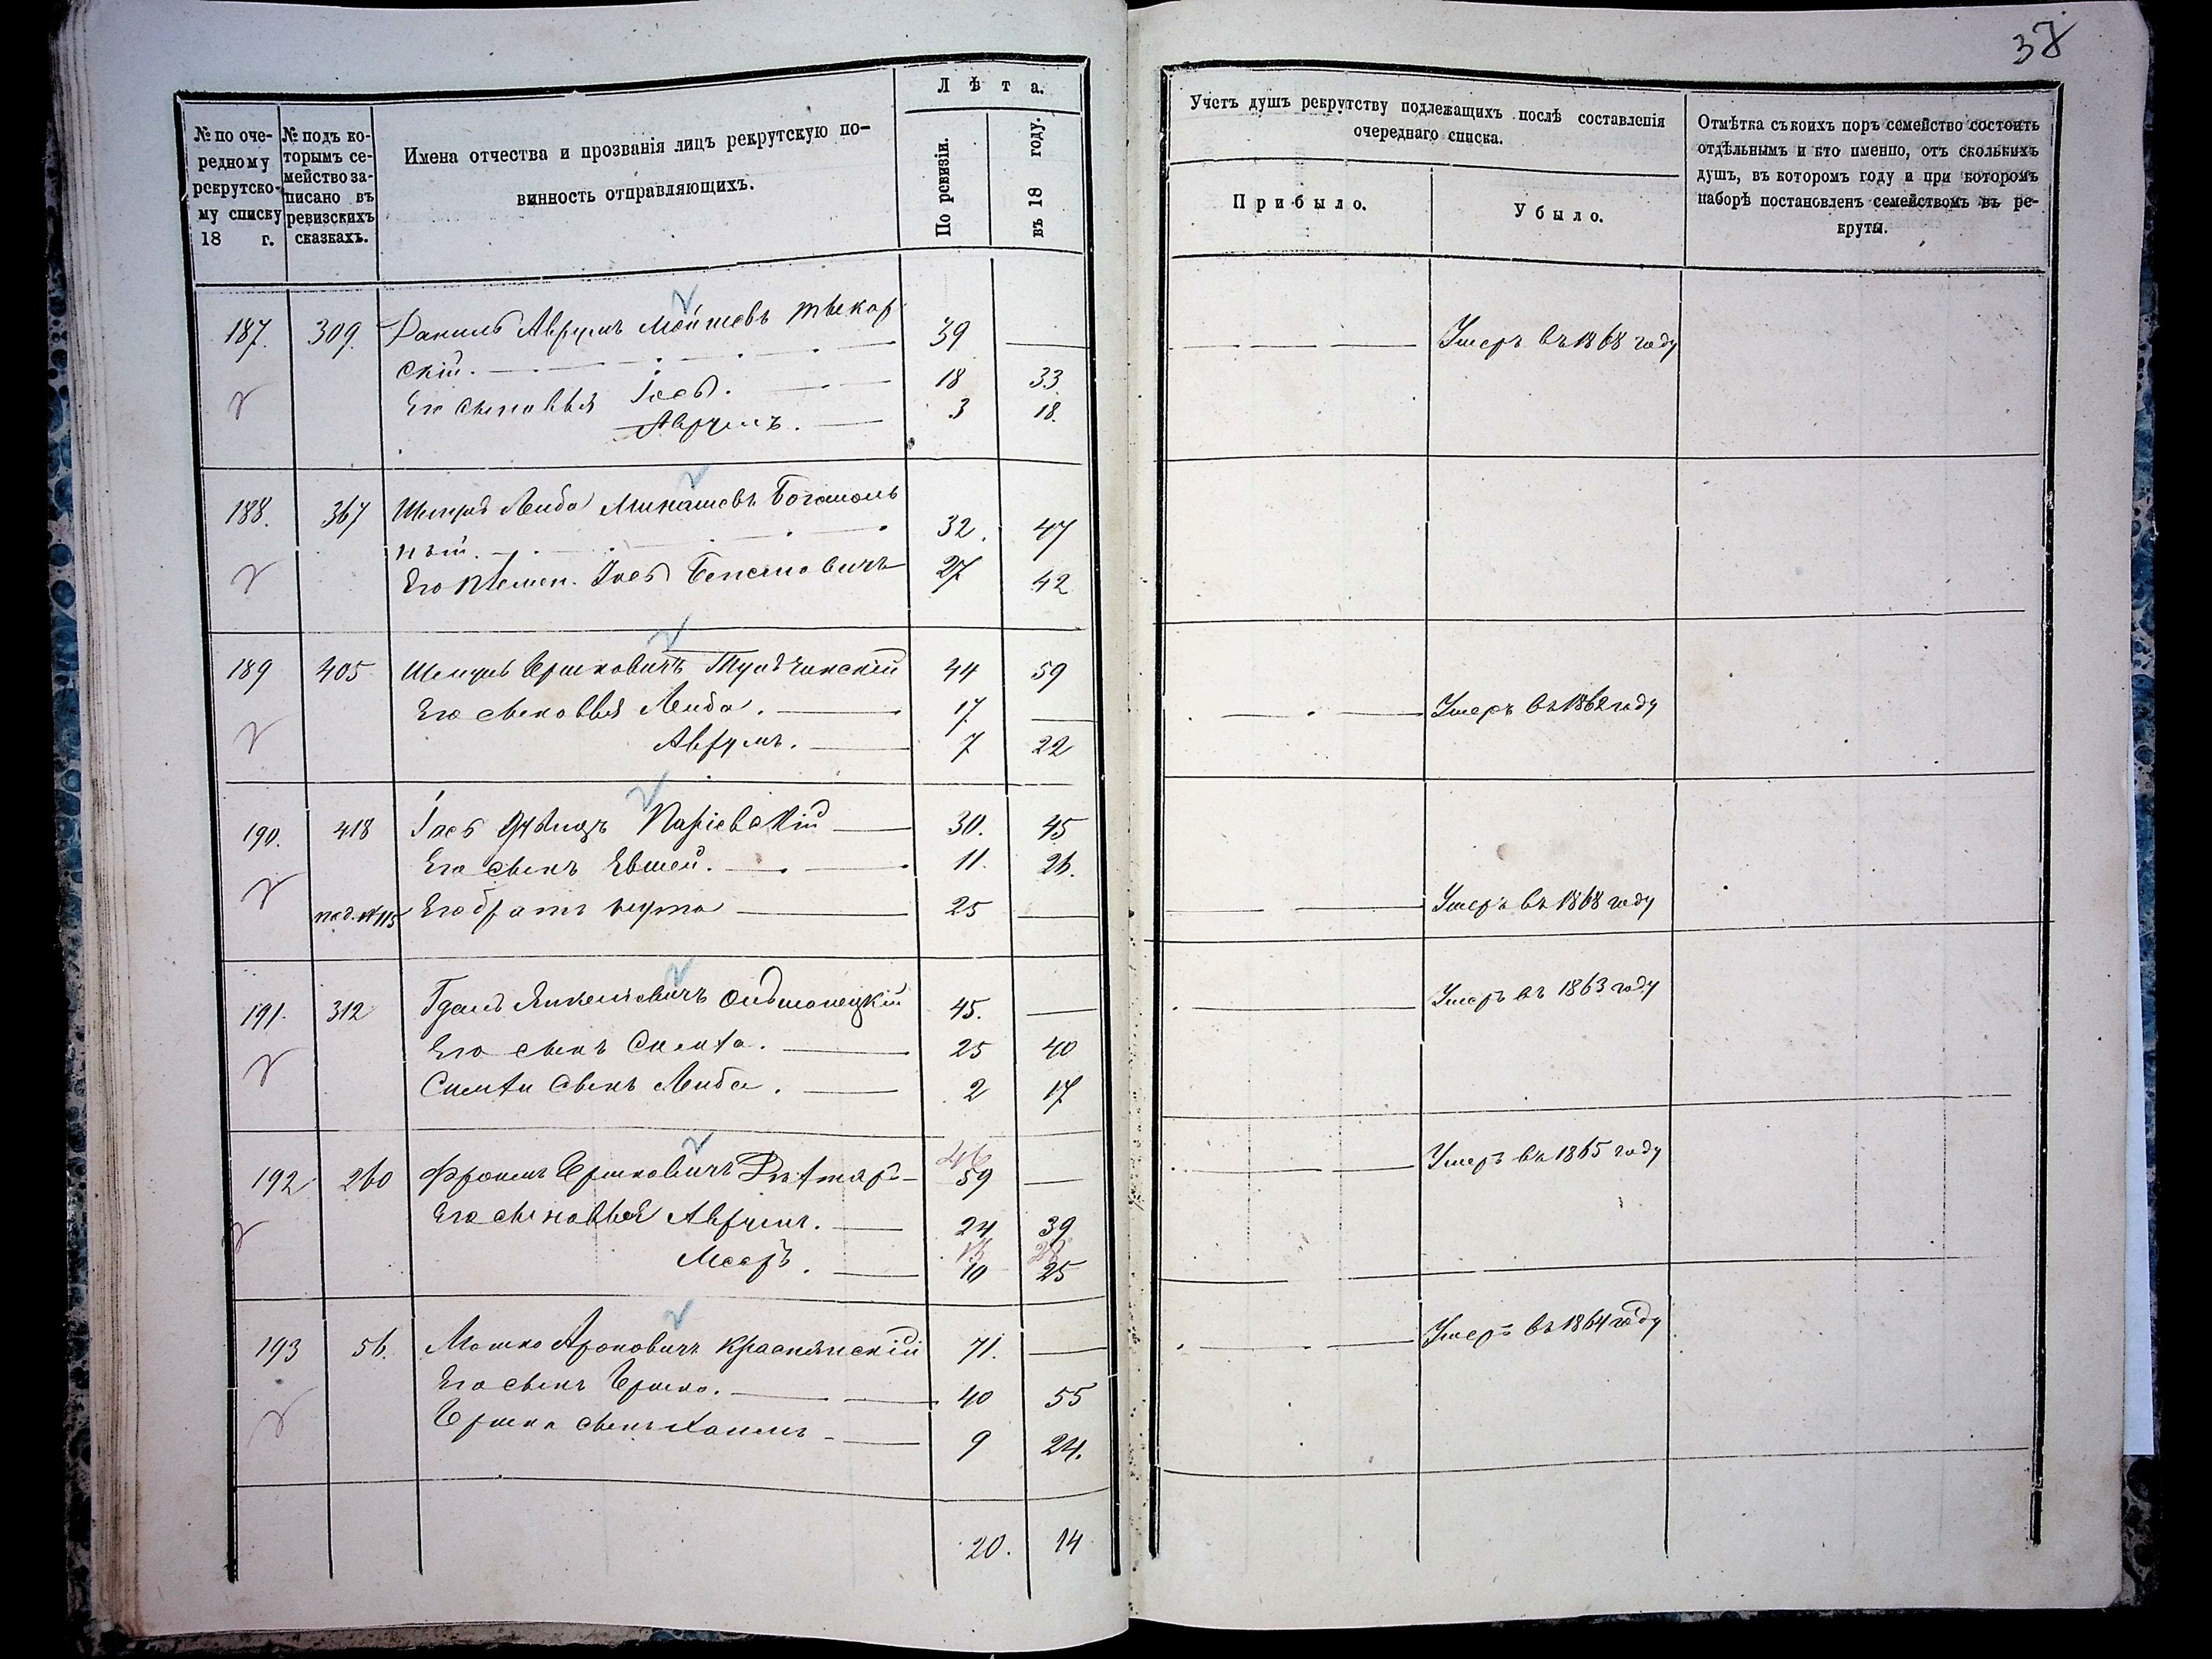 38
№ по оче-
редному
рекрутско-
му списку
18 г.
№ подъ ко-
торымъ се-
мейство за-
писано въ
ревизскихъ
сказкахъ.
Имена отчества и прозванія лицъ рекрутскую по-
винность отправляющихъ.
Л ѣ т а.
По ревизіи.
въ 18 году.
Учетъ душъ рекрутству подлежащихъ послѣ составленія
очереднаго списка.
Прибыло.
Убыло.
Отмѣтка съ коихъ поръ семейство состоитъ
отдѣльнымъ и кто именно, отъ сколькихъ
душъ, въ которомъ году и при которомъ
наборѣ постановленъ семействомъ въ ре-
круты.
187. 309. Аврумъ 39 — Умеръ въ 1868 году
скій.
Его сыновья Іось. 18 33
Аврумъ. 3 18.
188. 367 Шмуль Лейба Богомоль
ный. 32. 47
Его племен. Іось 27 42
189 405 Шмуль Ершковичъ Тульчинскій 44 59
Его сыновья Лейба. 17 — Умеръ въ 1862 году
Аврумъ. 7 22
190. 418 Іось 30. 45
Его сынъ Евшей. 11. 26.
под. № 115 Его братъ Нута 25 — Умеръ въ 1868 году
191. 312 45. — Умеръ въ 1863 году
Его сынъ Симха. 25 40
Симхи сынъ Лейба. 2 17
192 260 Фроимъ Ершковичъ 46 59 — Умеръ въ 1865 году
Его сыновья Аврумъ. 24 39
Мееръ. 13 10 28 25
193 56. Мошко Ароновичъ Краснянскій 71. — Умеръ въ 1864 году
Его сынъ Ершко. 40 55
Ершка сынъ Хаимъ 9 24.
20. 14